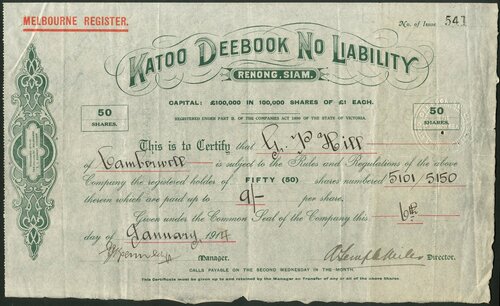 MELBOURNE REGISTER.
No. of Issue 541
KATOO DEEBOOK NO LIABILITY
RENONG, SIAM.
CAPITAL: £100,000 IN 100,000 SHARES OF £1 EACH.
REGISTERED UNDER PART II. OF THE COMPANIES ACT 1890 OF THE STATE OF VICTORIA.
50
SHARES.
50
SHARES.
This is to Certify that G. P. Hill
of Camberwell is subject to the Rules and Regulations of the above
Company the registered holder of FIFTY (50) shares numbered 5101/5150
therein which are paid up to 9/- per share.
Given under the Common Seal of the Company this 6th
day of January, 191
Manager.
Director.
CALLS PAYABLE ON THE SECOND WEDNESDAY IN THE MONTH.
This Certificate must be given up to and retained by the Manager on Transfer of any or all of the above Shares.